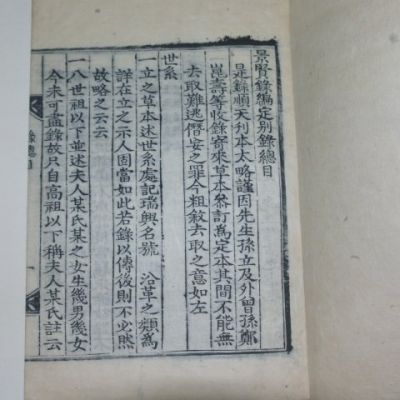 景賢錄編定別錄總目
是錄順天刋本太略謹因先生孫立及外曾孫鄭
崑壽等收錄寄來草本叅訂爲定本其間不能無
去取難逃僭妄之罪今粗敘去取之意如左
世系
一立之草本述世系處記瑞興名號 沿革之類爲
詳在立之示人固當如此若錄以傳後則不必然
故略之云云
一八世祖以下並述夫人某氏某之女生幾男幾女
今未可盡錄故只自高祖以下稱夫人某氏註云
錄總目